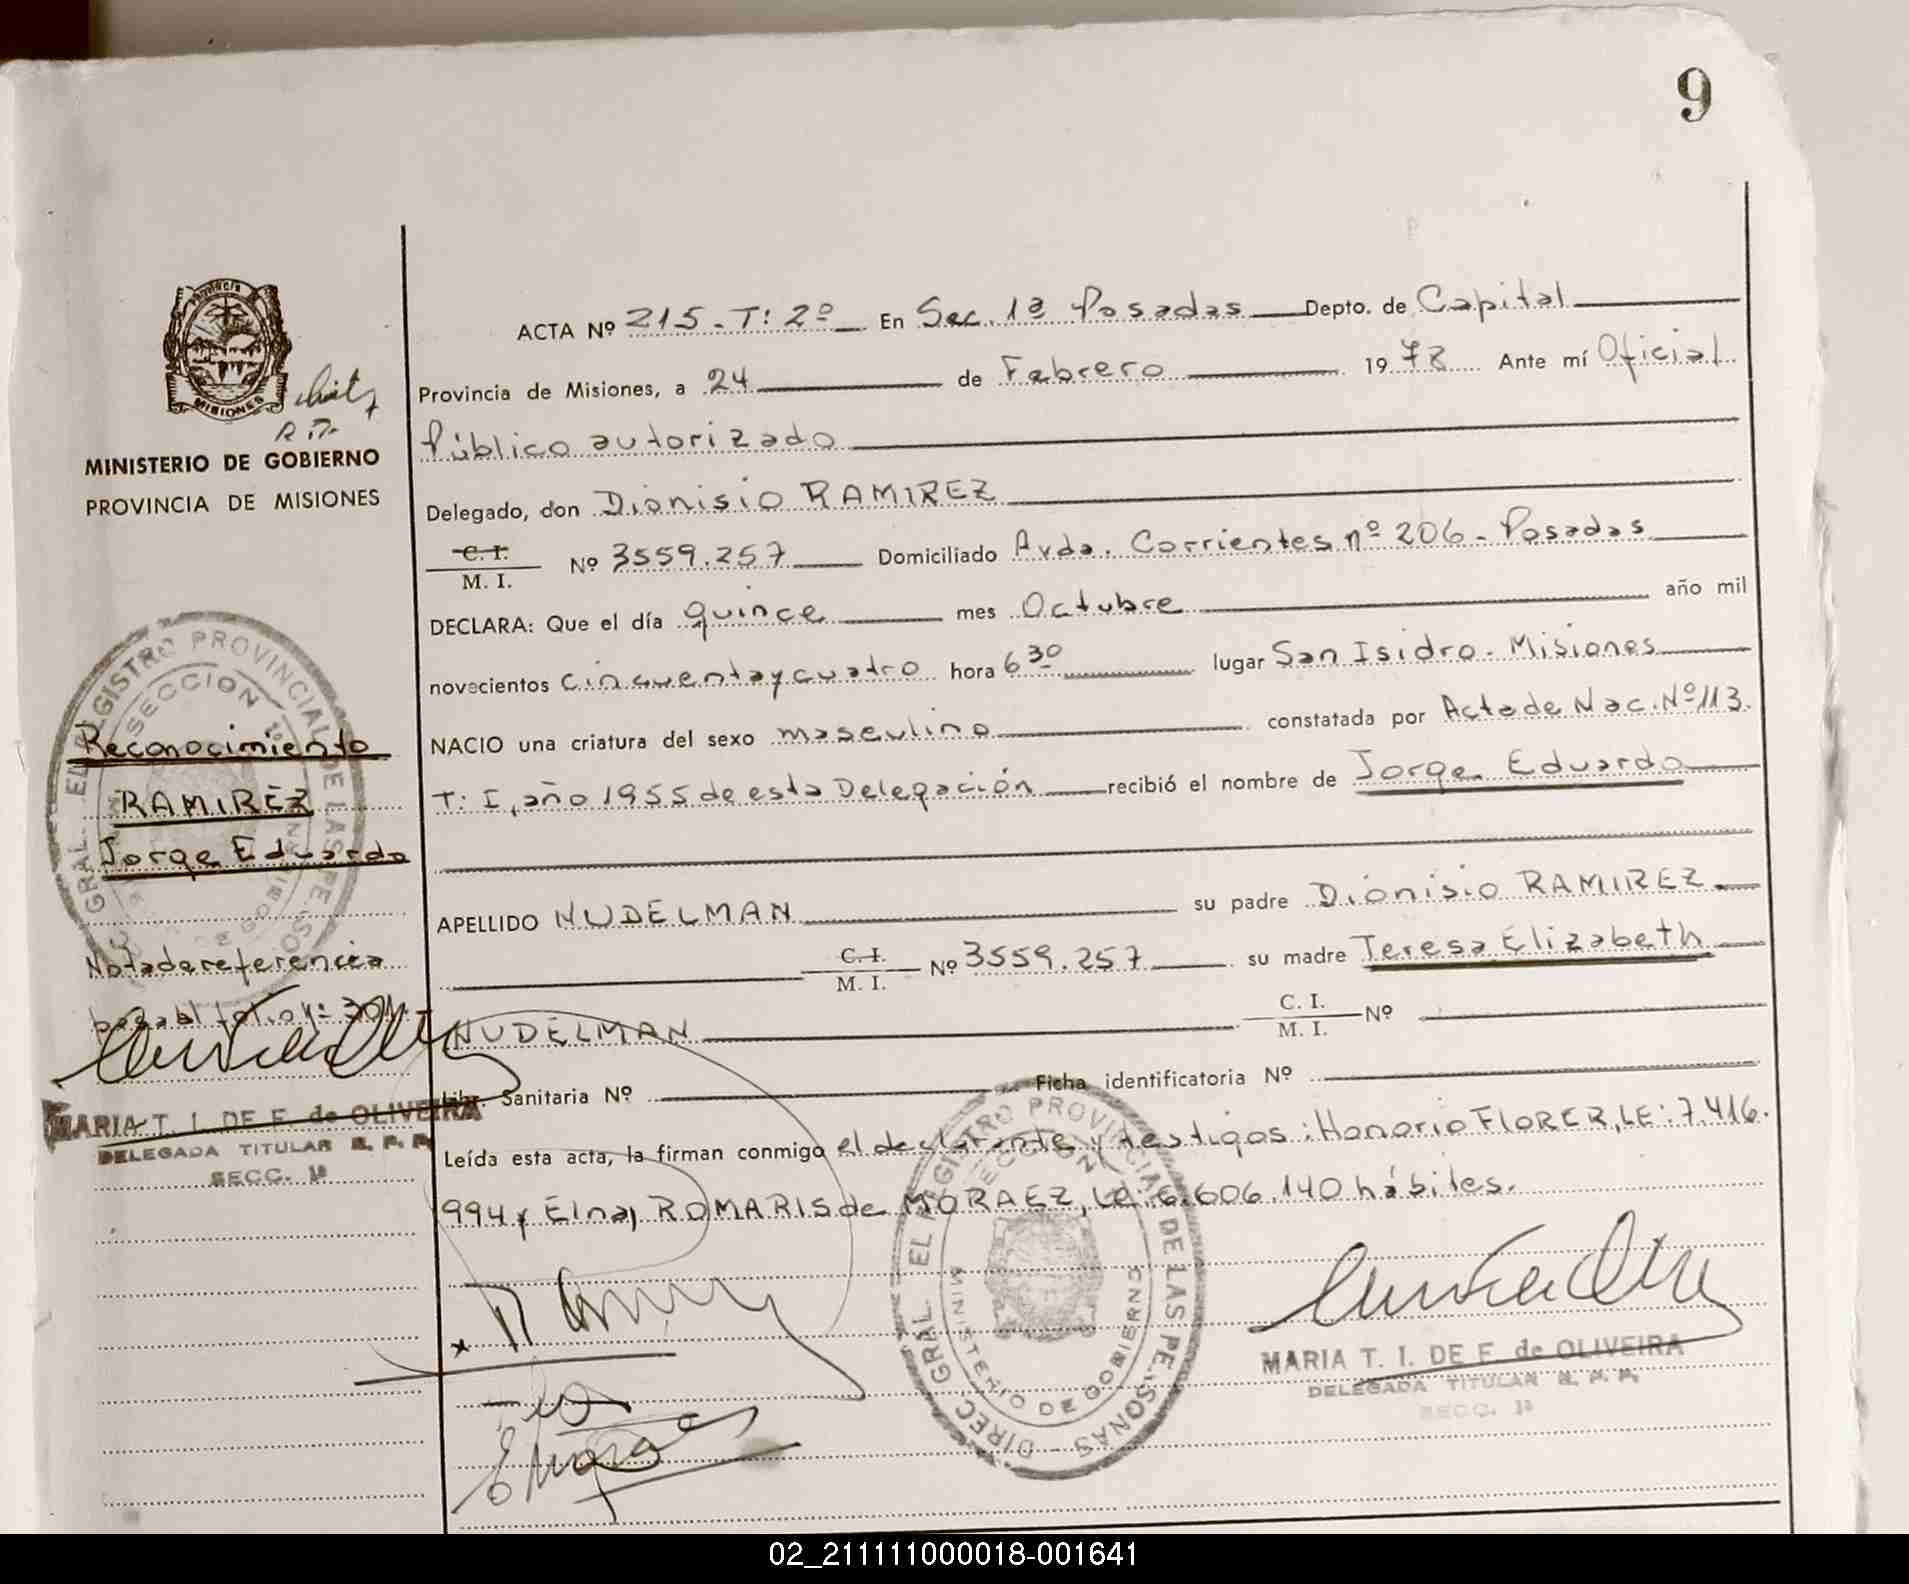 9
ACTA Nº 215 - T: 2º En Sec. 1ª Posadas Depto. de Capital
Provincia de Misiones, a 24 de Febrero 1978 Ante mí Oficial
Público autorizado
Delegado, don Dionisio RAMIREZ
C. I.
M. I. Nº 3559.257 Domiciliado Avda. Corrientes nº 206 - Posadas
DECLARA: Que el día quince mes Octubre año mil
novecientos cincuenta y cuatro hora 6 30 lugar San Isidro - Misiones
NACIO una criatura del sexo masculino constatada por Acta de Nac. Nº 113.
T: I, año 1955 de esta Delegación recibió el nombre de Jorge Eduardo
APELLIDO NUDELMAN su padre Dionisio RAMIREZ
C. I.
M. I. Nº 3559.257 su madre Teresa Elizabeth
NUDELMAN C. I.
M. I. Nº
Libr. Sanitaria Nº Ficha identificatoria Nº
Leída esta acta, la firman conmigo el declarante y testigos: Honorio FLORER, LE: 7.416.
994 y Elna, ROMARIS de MORAEZ, LE: 6.606.140 hábiles.
MARIA T. I. DE F. de OLIVEIRA
DELEGADA TITULAR R. P. P.
SECC. 1ª
DIREC. GRAL. EL REGISTRO PROVINCIAL DE LAS PERSONAS
SECCION 1ª
MINISTERIO DE GOBIERNO
PROVINCIA DE MISIONES
MISIONES
MINISTERIO DE GOBIERNO
PROVINCIA DE MISIONES
DIREC. GRAL. EL REGISTRO PROVINCIAL DE LAS PERSONAS
SECCION 1ª
Reconocimiento
RAMIREZ
Jorge Eduardo
Nota de referencia
MARIA T. I. DE F. de OLIVEIRA
DELEGADA TITULAR R. P. P.
SECC. 1ª
02_211111000018-001641